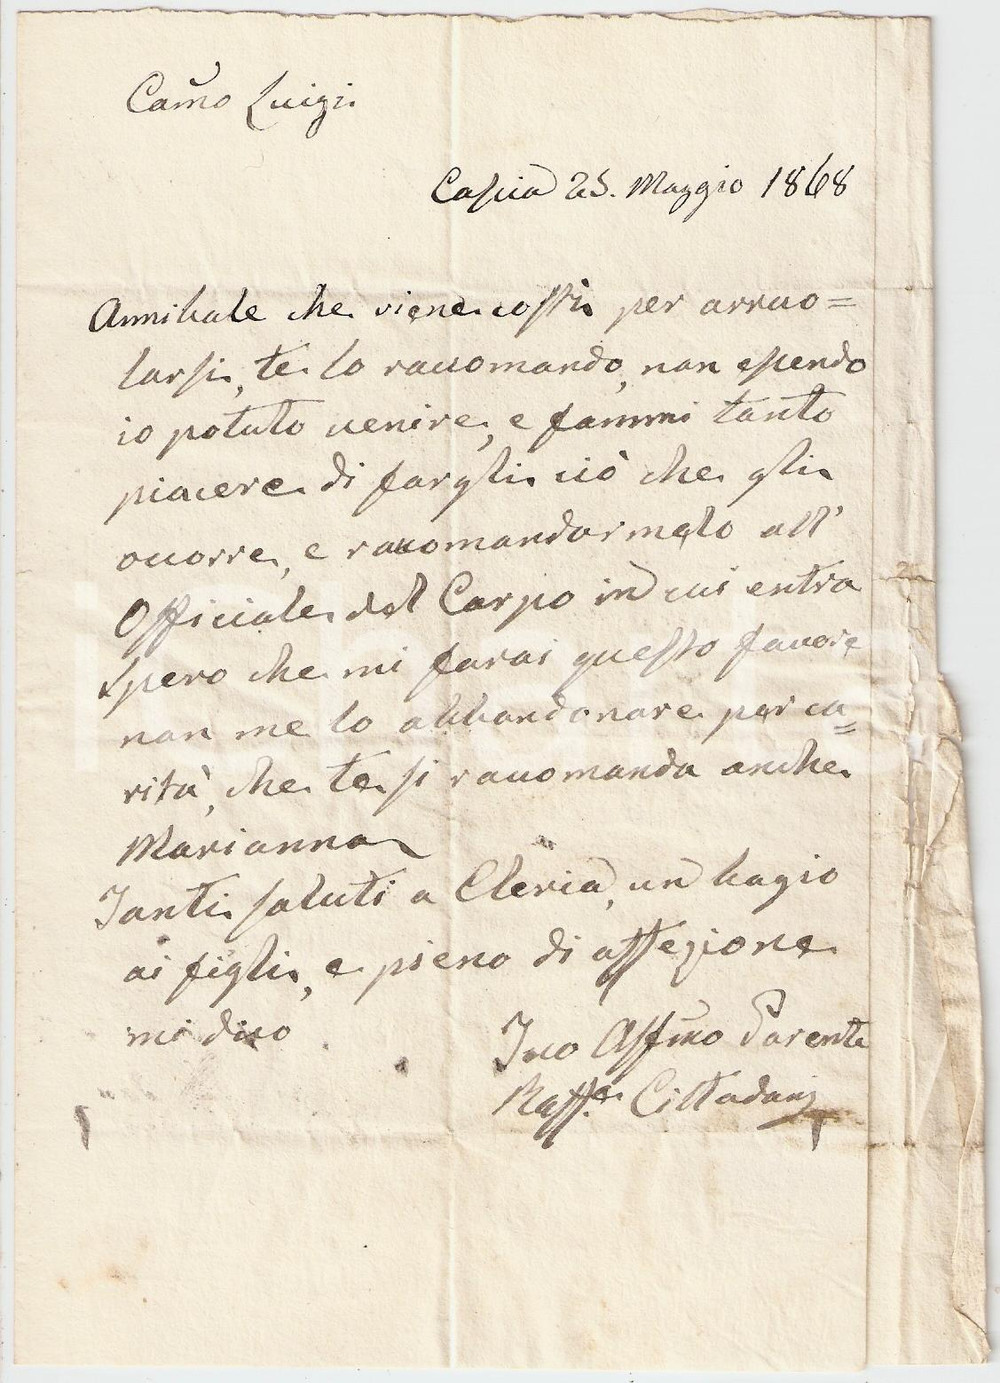 Carmo Luigi
Cascia 25. Maggio 1868
Annibale che viene costì per arruo=
larsi, te lo raccomando, non essendo
io potuto venire, e fammi tanto
piacere di fargli ciò che gli
occorre, e raccomandarmelo all'
Officiale del Corpo in cui entra
Spero che mi farai questo favore
non me lo abbandonare per ca=
rità, che te si raccomanda anche
Marianna
Tanti saluti a Cleria, un bagio
ai figli, e pieno di affezione
mi dico
Tuo Affmo Parente
Raffe Cittadani